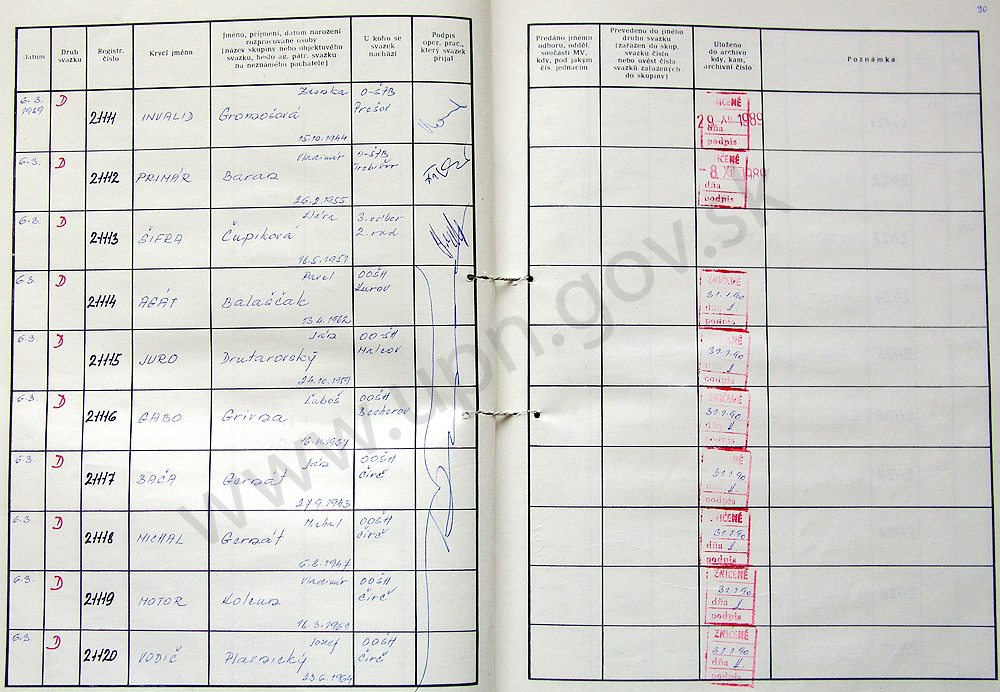 90
Datum
Druh
svazku
Registr.
číslo
Krycí jméno
Jméno, příjmení, datum narození
rozpracované osoby
[název skupiny nebo objektového
svazku, heslo ag. pátr. svazku
na neznámého pachatele]
U koho se
svazek
nachází
Podpis
oper. prac.,
který svazek
přijal
Předáno jinému
odboru, odděl.
součásti MV,
kdy, pod jakým
čís. jednacím
Převedeno do jiného
druhu svazku
[zařazen do skup.
svazku číslo
nebo uvést čísla
svazků zařazených
do skupiny]
Uloženo
do archivu
kdy, kam,
archivní číslo
Poznámka
6.3.
1989
D
21111
INVALID
Zdenka
Gromošová
15.10.1944
O-ŠTB
Prešov
29.XII.1989
dňa
podpis
6.3.
D
21112
PRIMÁR
Vladimír
Baran
26.2.1955
O-ŠTB
Trebišov
-8.XII.1989
dňa
podpis
6.3.
D
21113
ŠIFRA
Čupiková
16.5.1951
3.odbor
2.
6.3.
D
21114
AGÁT
Pavel
Balaščák
13.4.1962
OOŠH
Kurov
ZNIČENÉ
31.1.90
dňa
podpis
6.3.
D
21115
JURO
Ján
Drutarovský
24.10.1959
OO-ŠH
Malcov
ZNIČENÉ
31.1.90
dňa
podpis
6.3.
D
21116
GABO
Ľuboš
Grivna
OOŠH
Becherov
ZNIČENÉ
31.1.90
dňa
podpis
6.3.
D
21117
BAČA
Ján
Genzát
27.9.1943
OOŠH
Čirč
ZNIČENÉ
31.1.90
dňa
podpis
6.3.
D
21118
MICHAL
Michal
Genzát
6.8.1947
OOŠH
Čirč
ZNIČENÉ
31.1.90
dňa
podpis
6.3.
D
21119
MOTOR
Vladimír
Kolcun
16.3.1961
OOŠH
Čirč
ZNIČENÉ
31.1.90
dňa
podpis
6.3.
D
21120
VODIČ
Jozef
Plavnický
23.6.1964
OOŠH
Čirč
ZNIČENÉ
31.1.90
dňa
podpis
www.upn.gov.sk